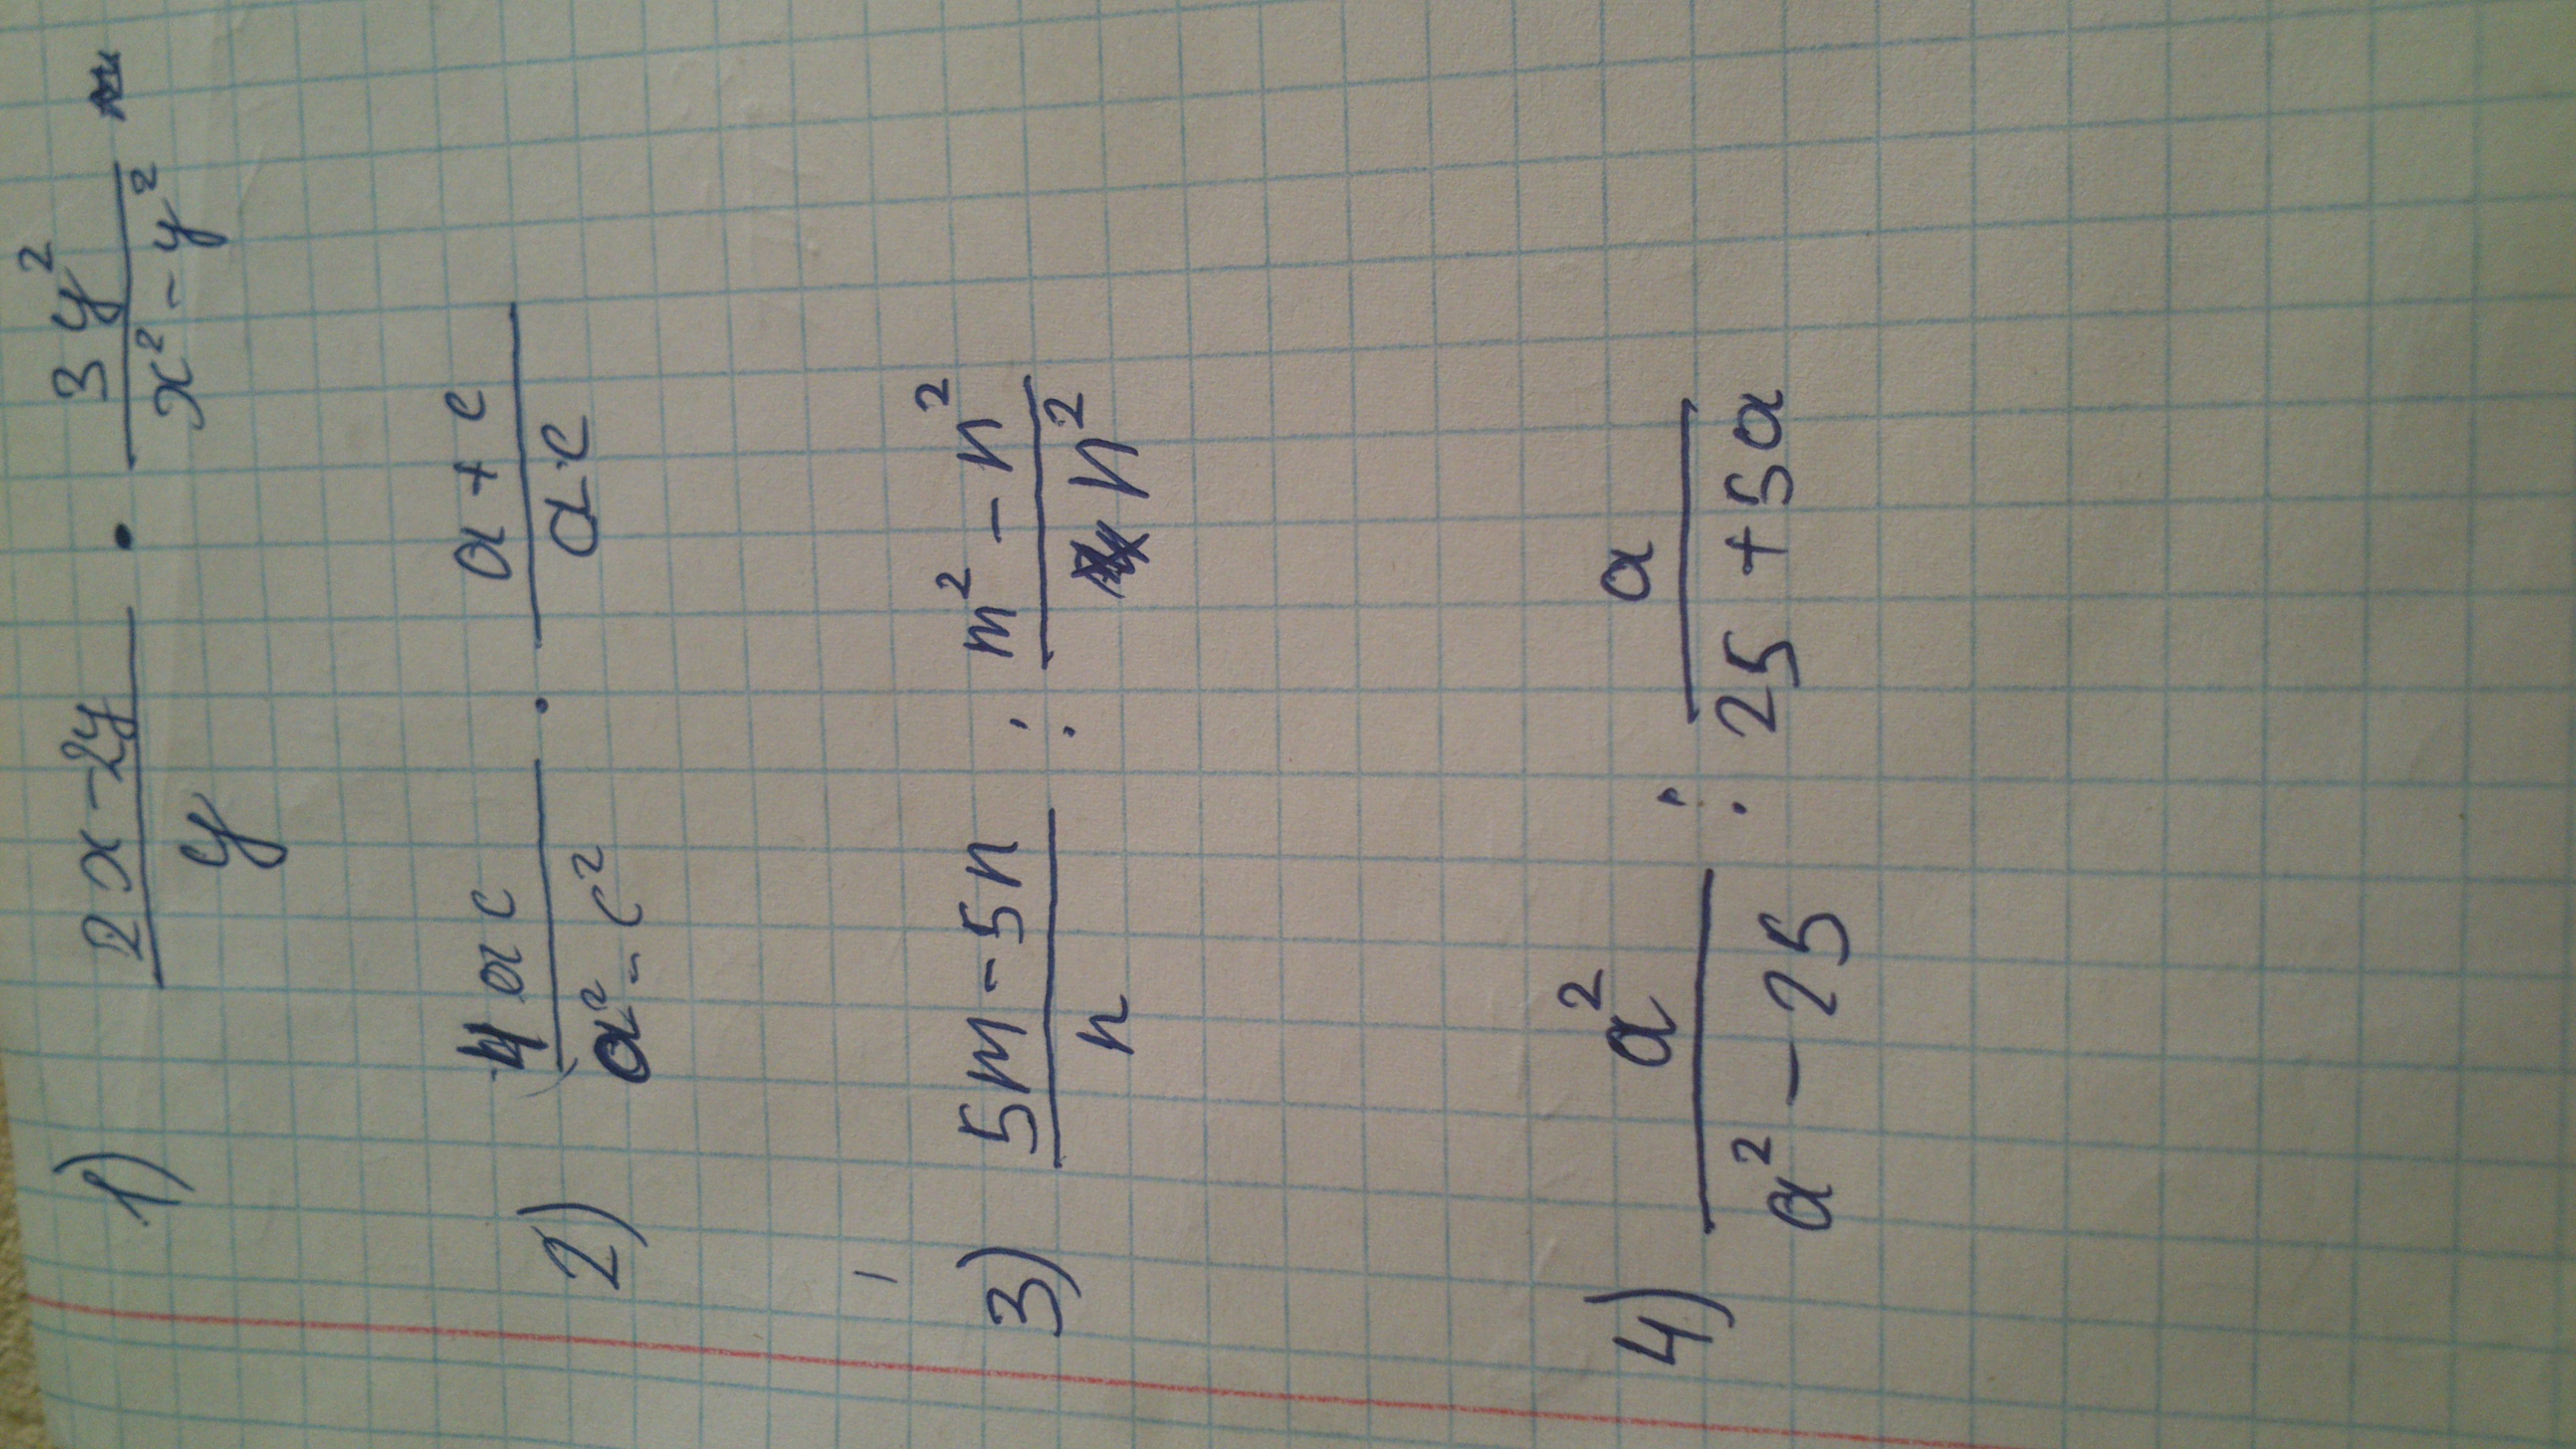 1) (2x-2y)/y · 3y²/(x²-y²)
2) 4ac/(a²-c²) · (a+c)/(ac)
3) (5m-5n)/n : (m²-n²)/n²
4) a²/(a²-25) : a/(25+5a)